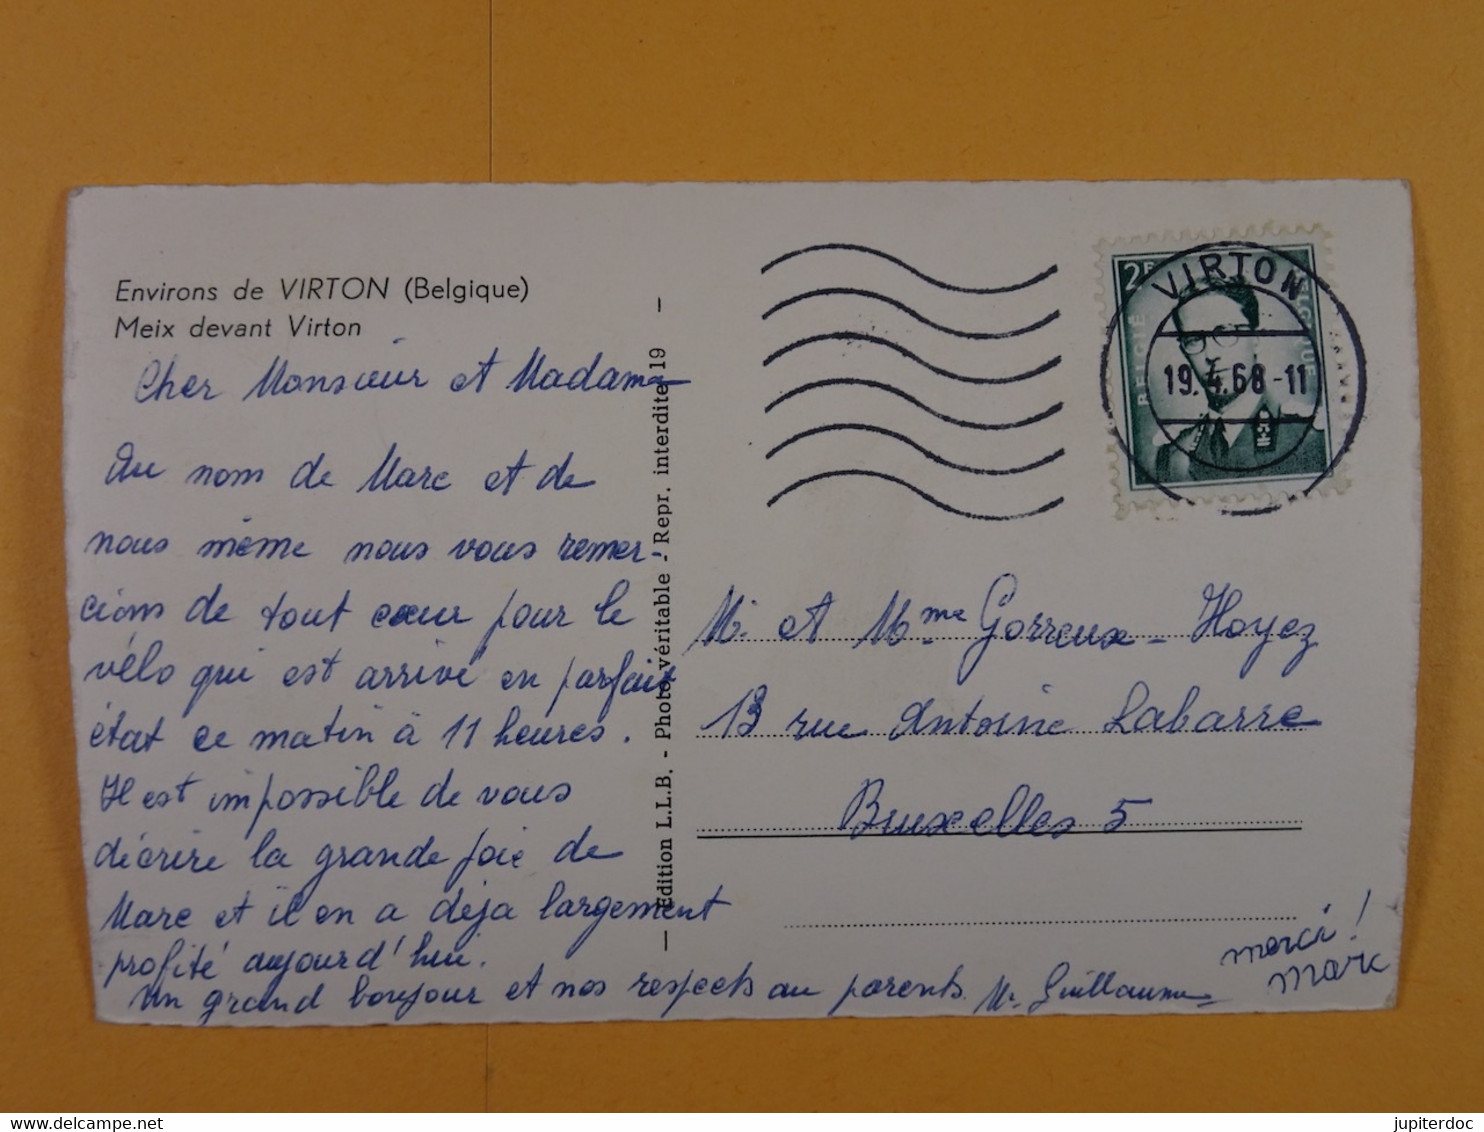 Environs de VIRTON (Belgique)
Meix devant Virton
Cher Monsieur et Madame
Au nom de Marc et de
nous même nous vous remer-
cions de tout cœur pour le
vélo qui est arrivé en parfait
état ce matin à 11 heures.
Il est impossible de vous
décrire la grande joie de
Marc et il en a déja largement
profité aujourd'hui.
Un grand bonjour et nos respects au parents. Mr Guillaume
merci!
Marc
— Edition L.L.B. - Photo véritable - Repr. interdite 19 —
2F
BELGIË
BELGIQUE
VIRTON
19.4.68-11
M. et Mme Gorreux-Hoyez
13 rue Antoine Labarre
Bruxelles 5
delcampe.net
jupiterdoc